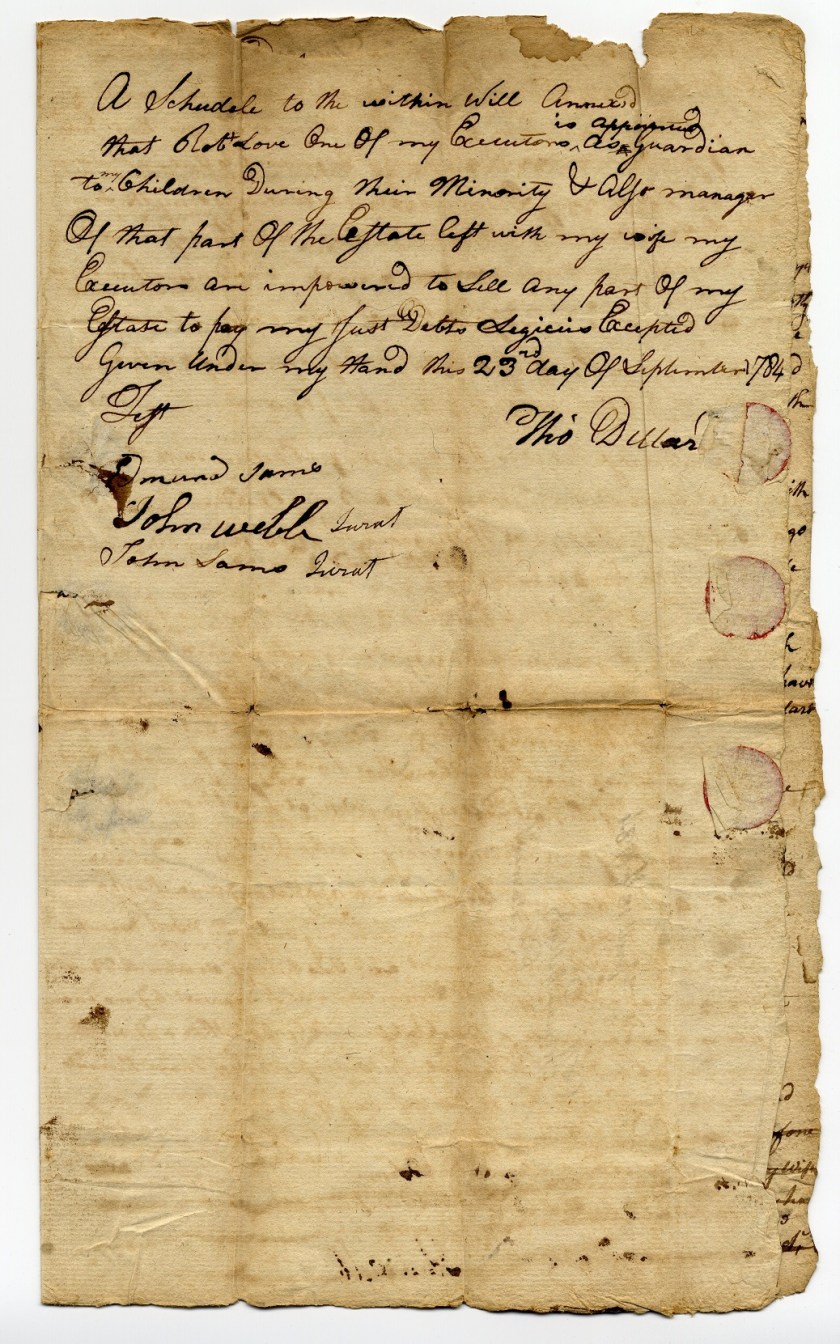 A Schudele to the within Will Annexed
that Robt Love One Of my Executors is appointed as guardian
to my Children During their Minority & Also manager
Of that part Of the Estate left with my wife my
Executors are impowered to Sell Any part Of my
Estate to pay my Just Debts Legicies Excepted
Given Under my Hand this 23rd day Of September 1784
Test
Tho Dillar
Edmund Sams
John Webb Jurat
John Sams Jurat